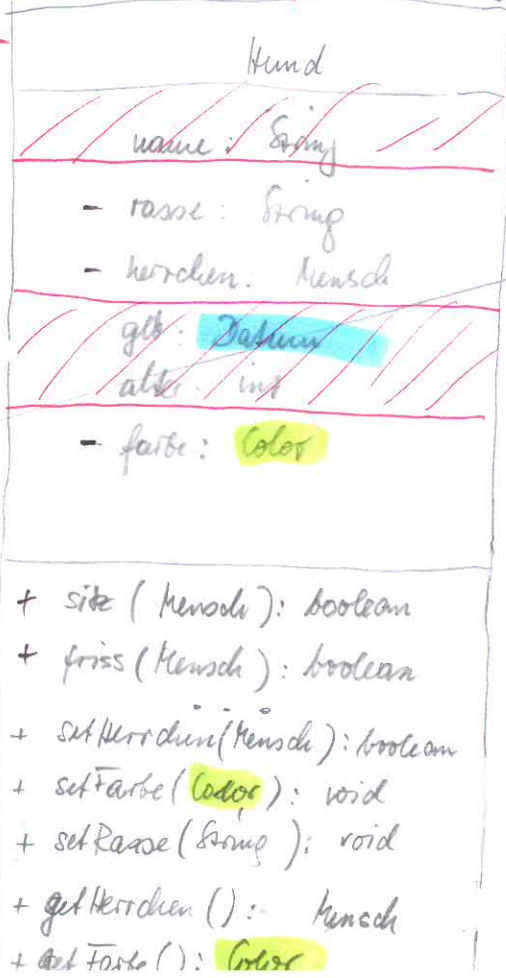 Hund
name : String
- rasse : String
- herrchen : Mensch
geb : Datum
alter : int
- farbe : Color
+ sitz ( Mensch ) : boolean
+ friss ( Mensch ) : boolean
+ setHerrchen(Mensch) : boolean
+ setFarbe ( Color ) : void
+ setRasse ( String ) : void
+ getHerrchen () : Mensch
+ getFarbe () : Color